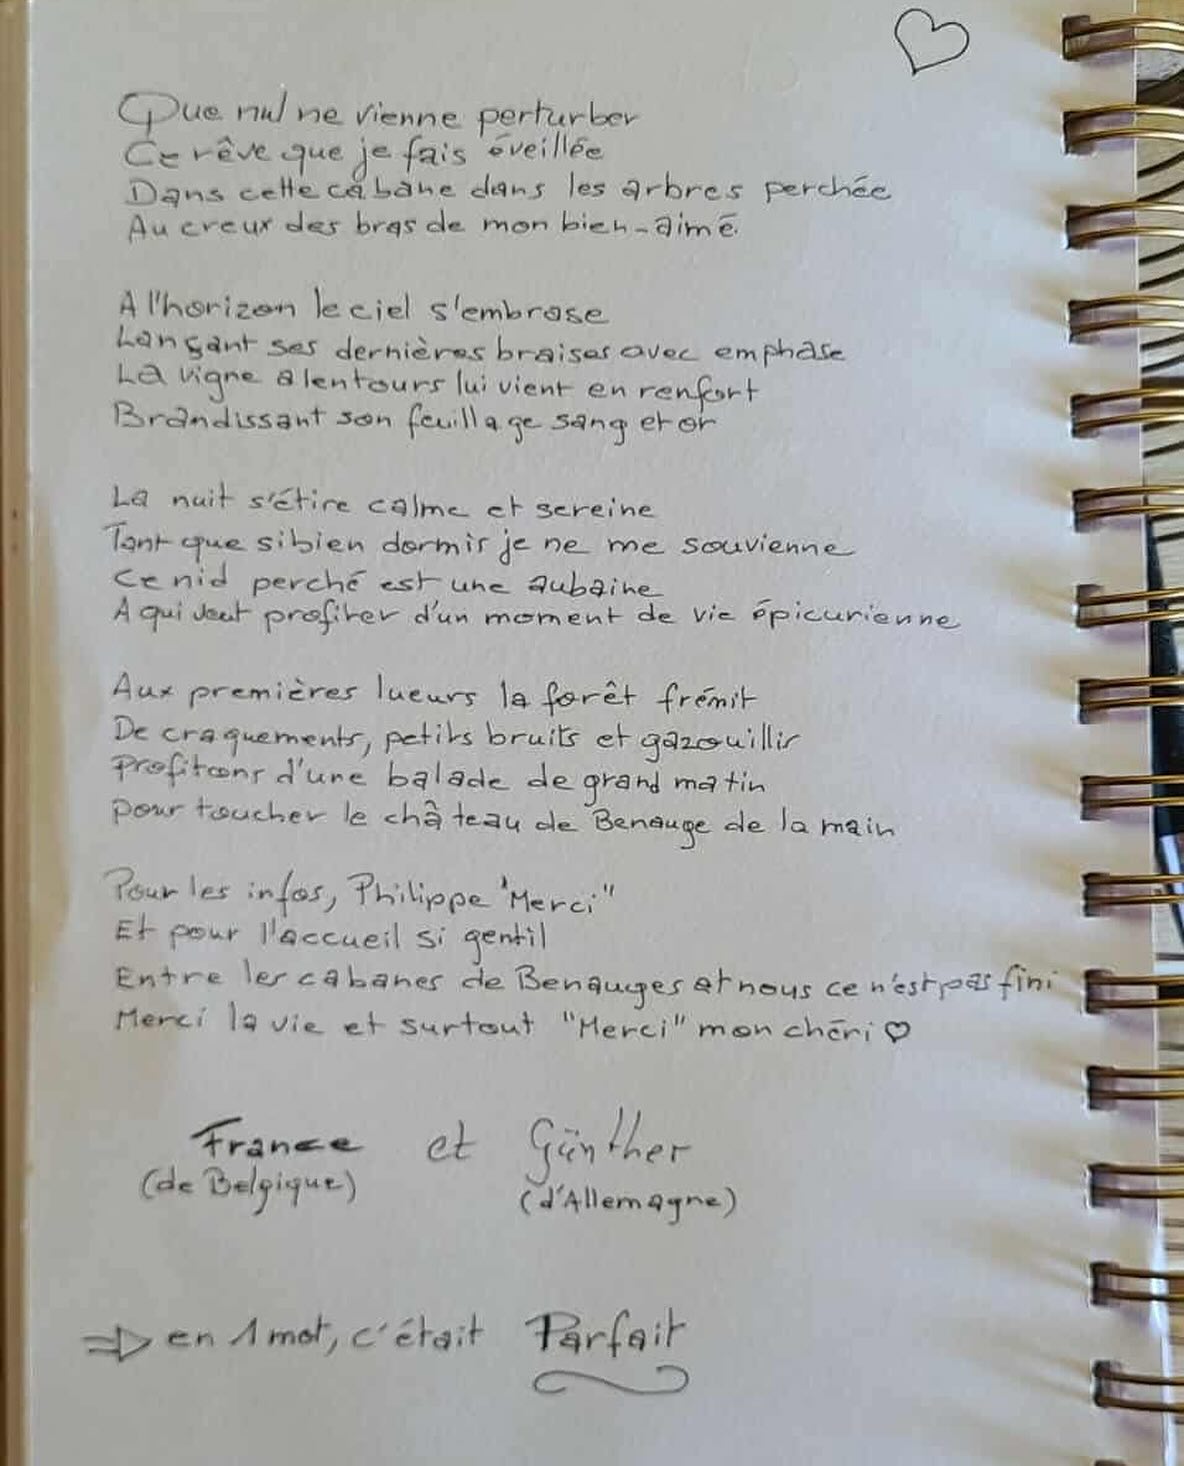 Que nul ne vienne perturber
Ce rêve que je fais éveillée
Dans cette cabane dans les arbres perchée
Au creux des bras de mon bien-aimé.
A l'horizon le ciel s'embrase
Lançant ses dernières braises avec emphase
La vigne alentours lui vient en renfort
Brandissant son feuillage sang et or
La nuit s'étire calme et sereine
Tant que si bien dormir je ne me souvienne
Ce nid perché est une aubaine
A qui veut profiter d'un moment de vie épicurienne
Aux premières lueurs la forêt frémit
De craquements, petits bruits et gazouillis
Profitons d'une balade de grand matin
pour toucher le château de Benauge de la main
Pour les infos, Philippe "Merci"
Et pour l'accueil si gentil
Entre les cabanes de Benauges et nous ce n'est pas fini
Merci la vie et surtout "Merci" mon chéri ♡
France et Günther
(de Belgique) (d'Allemagne)
⇒ en 1 mot, c'était Parfait